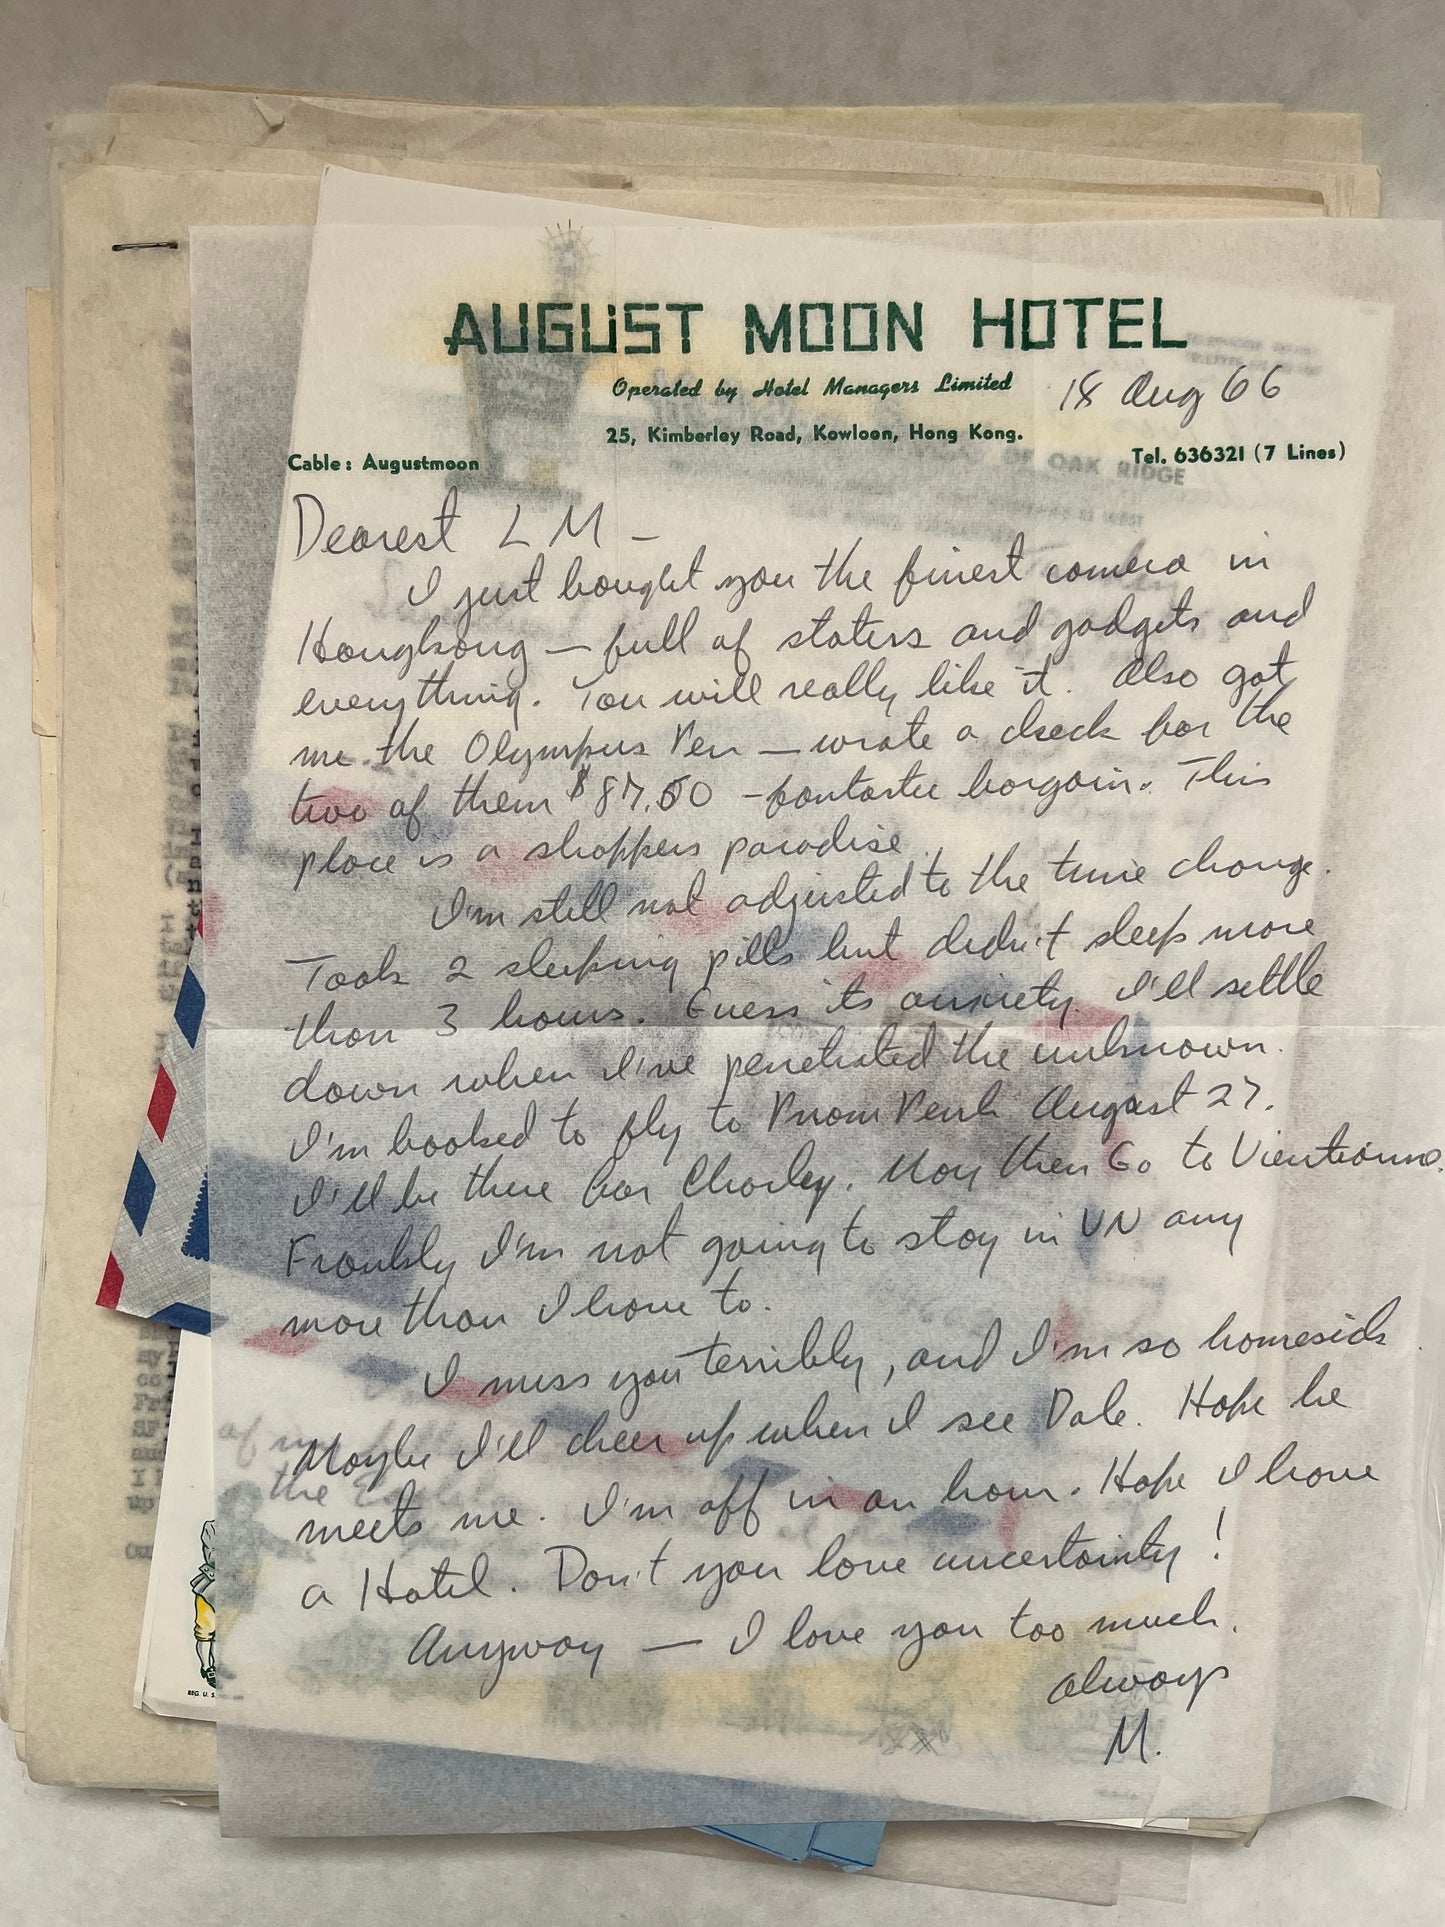 AUGUST MOON HOTEL
Operated by Hotel Managers Limited
18 Aug 66
25, Kimberley Road, Kowloon, Hong Kong.
Cable: Augustmoon
Tel. 636321 (7 Lines)
OF OAK RIDGE
Dearest L M –
I just bought you the finest camera in
Hongkong – full of staters and gadgets and
everything. You will really like it. Also got
me the Olympus Pen – wrote a check for the
two of them $87.50 – fantastic bargain. This
place is a shoppers paradise.
I'm still not adjusted to the time change.
Took 2 sleeping pills but didn't sleep more
than 3 hours. Guess its anxiety. I'll settle
down when I've penetrated the unknown.
I'm booked to fly to Pnom Penh August 27.
I'll be there for Charley. May then Go to Vientianne.
Frankly I'm not going to stay in VN any
more than I have to.
I miss you terribly, and I'm so homesick.
Maybe I'll cheer up when I see Dale. Hope he
meets me. I'm off in an hour. Hope I have
a Hotel. Don't you love uncertainty!
Anyway – I love you too much.
always
M.
REG. U. S.